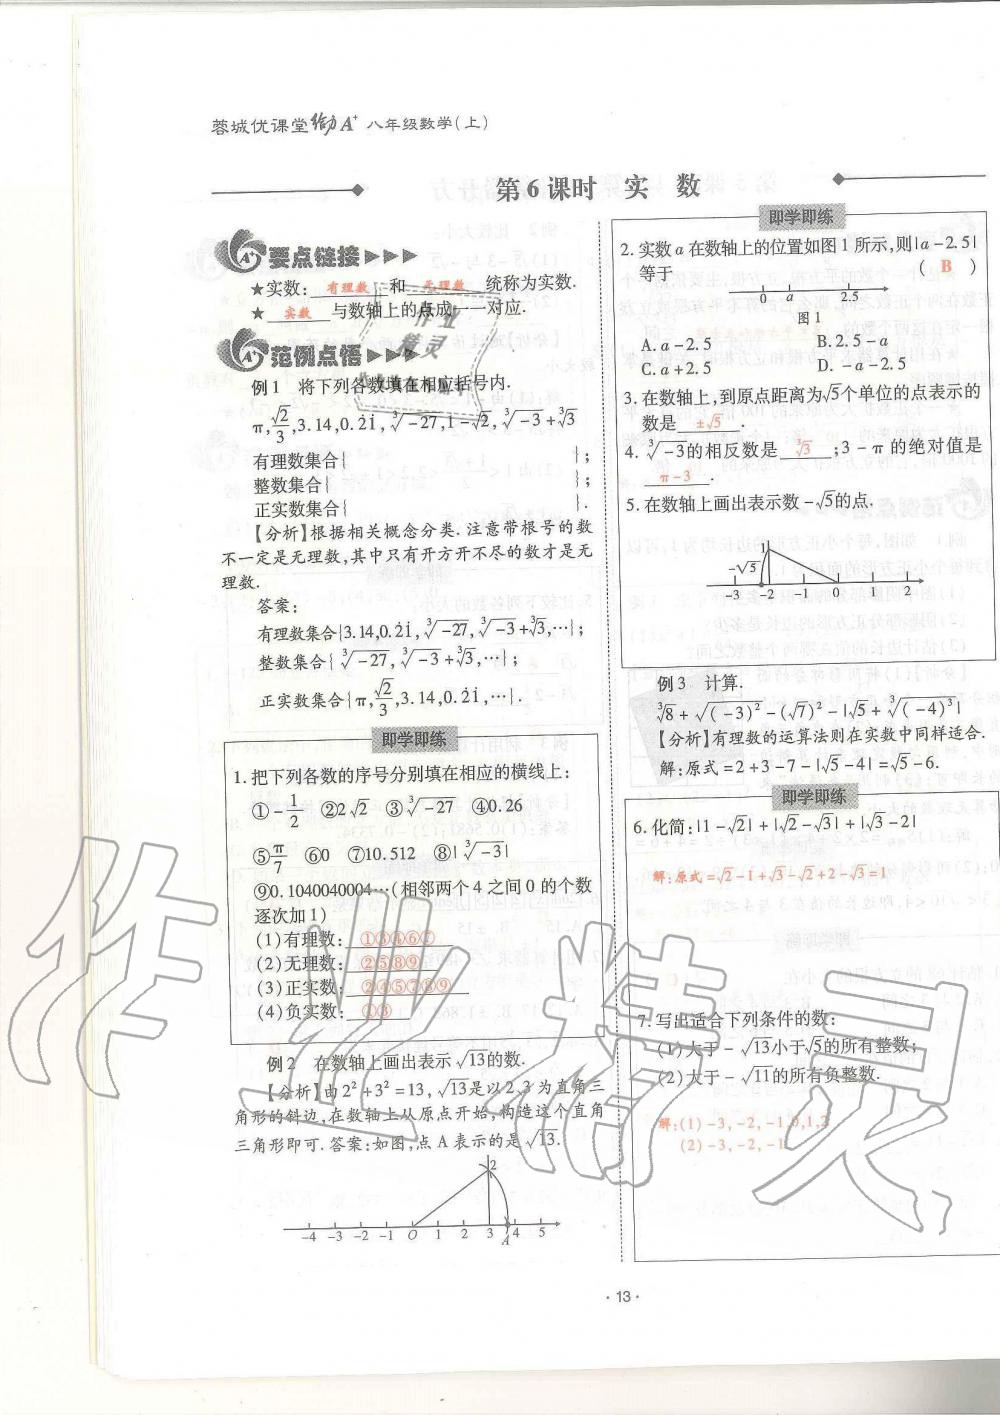 蓉城优课堂 给力A⁺ 八年级数学(上)
第6课时 实 数
要点链接
★实数: 有理数 和 无理数 统称为实数.
★ 实数 与数轴上的点成一一对应.
范例点悟
例1 将下列各数填在相应括号内.
π,√2/3,3.14,0.2̇1̇,³√-27,1-√2,³√-3+³√3
有理数集合{ };
整数集合{ };
正实数集合{ }.
【分析】根据相关概念分类.注意带根号的数
不一定是无理数,其中只有开方开不尽的数才是无
理数.
答案:
有理数集合{3.14,0.2̇1̇,³√-27,³√-3+³√3,…};
整数集合{³√-27,³√-3+³√3,…};
正实数集合{π,√2/3,3.14,0.2̇1̇,…}.
即学即练
1.把下列各数的序号分别填在相应的横线上:
①-1/2 ②2√2 ③³√-27 ④0.26
⑤π/7 ⑥0 ⑦10.512 ⑧|³√-3|
⑨0.1040040004…(相邻两个4之间0的个数
逐次加1)
(1)有理数: ①③④⑥⑦
(2)无理数: ②⑤⑧⑨
(3)正实数: ②④⑤⑦⑧⑨
(4)负实数: ①③
例2 在数轴上画出表示√13的数.
【分析】由2²+3²=13,√13是以2,3为直角三
角形的斜边,在数轴上从原点开始,构造这个直角
三角形即可.答案:如图,点A表示的是√13.
2
-4 -3 -2 -1 O 1 2 3 A 4 5
即学即练
2.实数a在数轴上的位置如图1所示,则|a-2.5|
等于 ( B )
0 a 2.5
图1
A.a-2.5 B.2.5-a
C.a+2.5 D.-a-2.5
3.在数轴上,到原点距离为√5个单位的点表示的
数是 ±√5 .
4.³√-3的相反数是 ³√3 ;3-π的绝对值是
π-3 .
5.在数轴上画出表示数-√5的点.
1
-√5
-3 -2 -1 0 1 2
例3 计算.
³√8+√(-3)²-(√7)²-|√5+³√(-4)³|
【分析】有理数的运算法则在实数中同样适合.
解:原式=2+3-7-|√5-4|=√5-6.
即学即练
6.化简:|1-√2|+|√2-√3|+|√3-2|
解:原式=√2-1+√3-√2+2-√3=1
7.写出适合下列条件的数:
(1)大于-√13小于√5的所有整数;
(2)大于-√11的所有负整数.
解:(1)-3,-2,-1,0,1,2
(2)-3,-2,-1
·13·
作业精灵